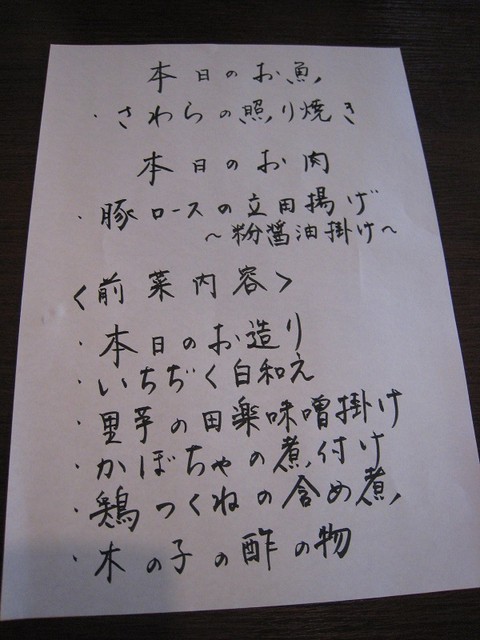 本日のお魚
・さわらの照り焼き
本日のお肉
・豚ロースの立田揚げ
～粉醤油掛け～
〈前菜内容〉
・本日のお造り
・いちぢく白和え
・里芋の田楽味噌掛け
・かぼちゃの煮付け
・鶏つくねの含め煮
・木の子の酢の物